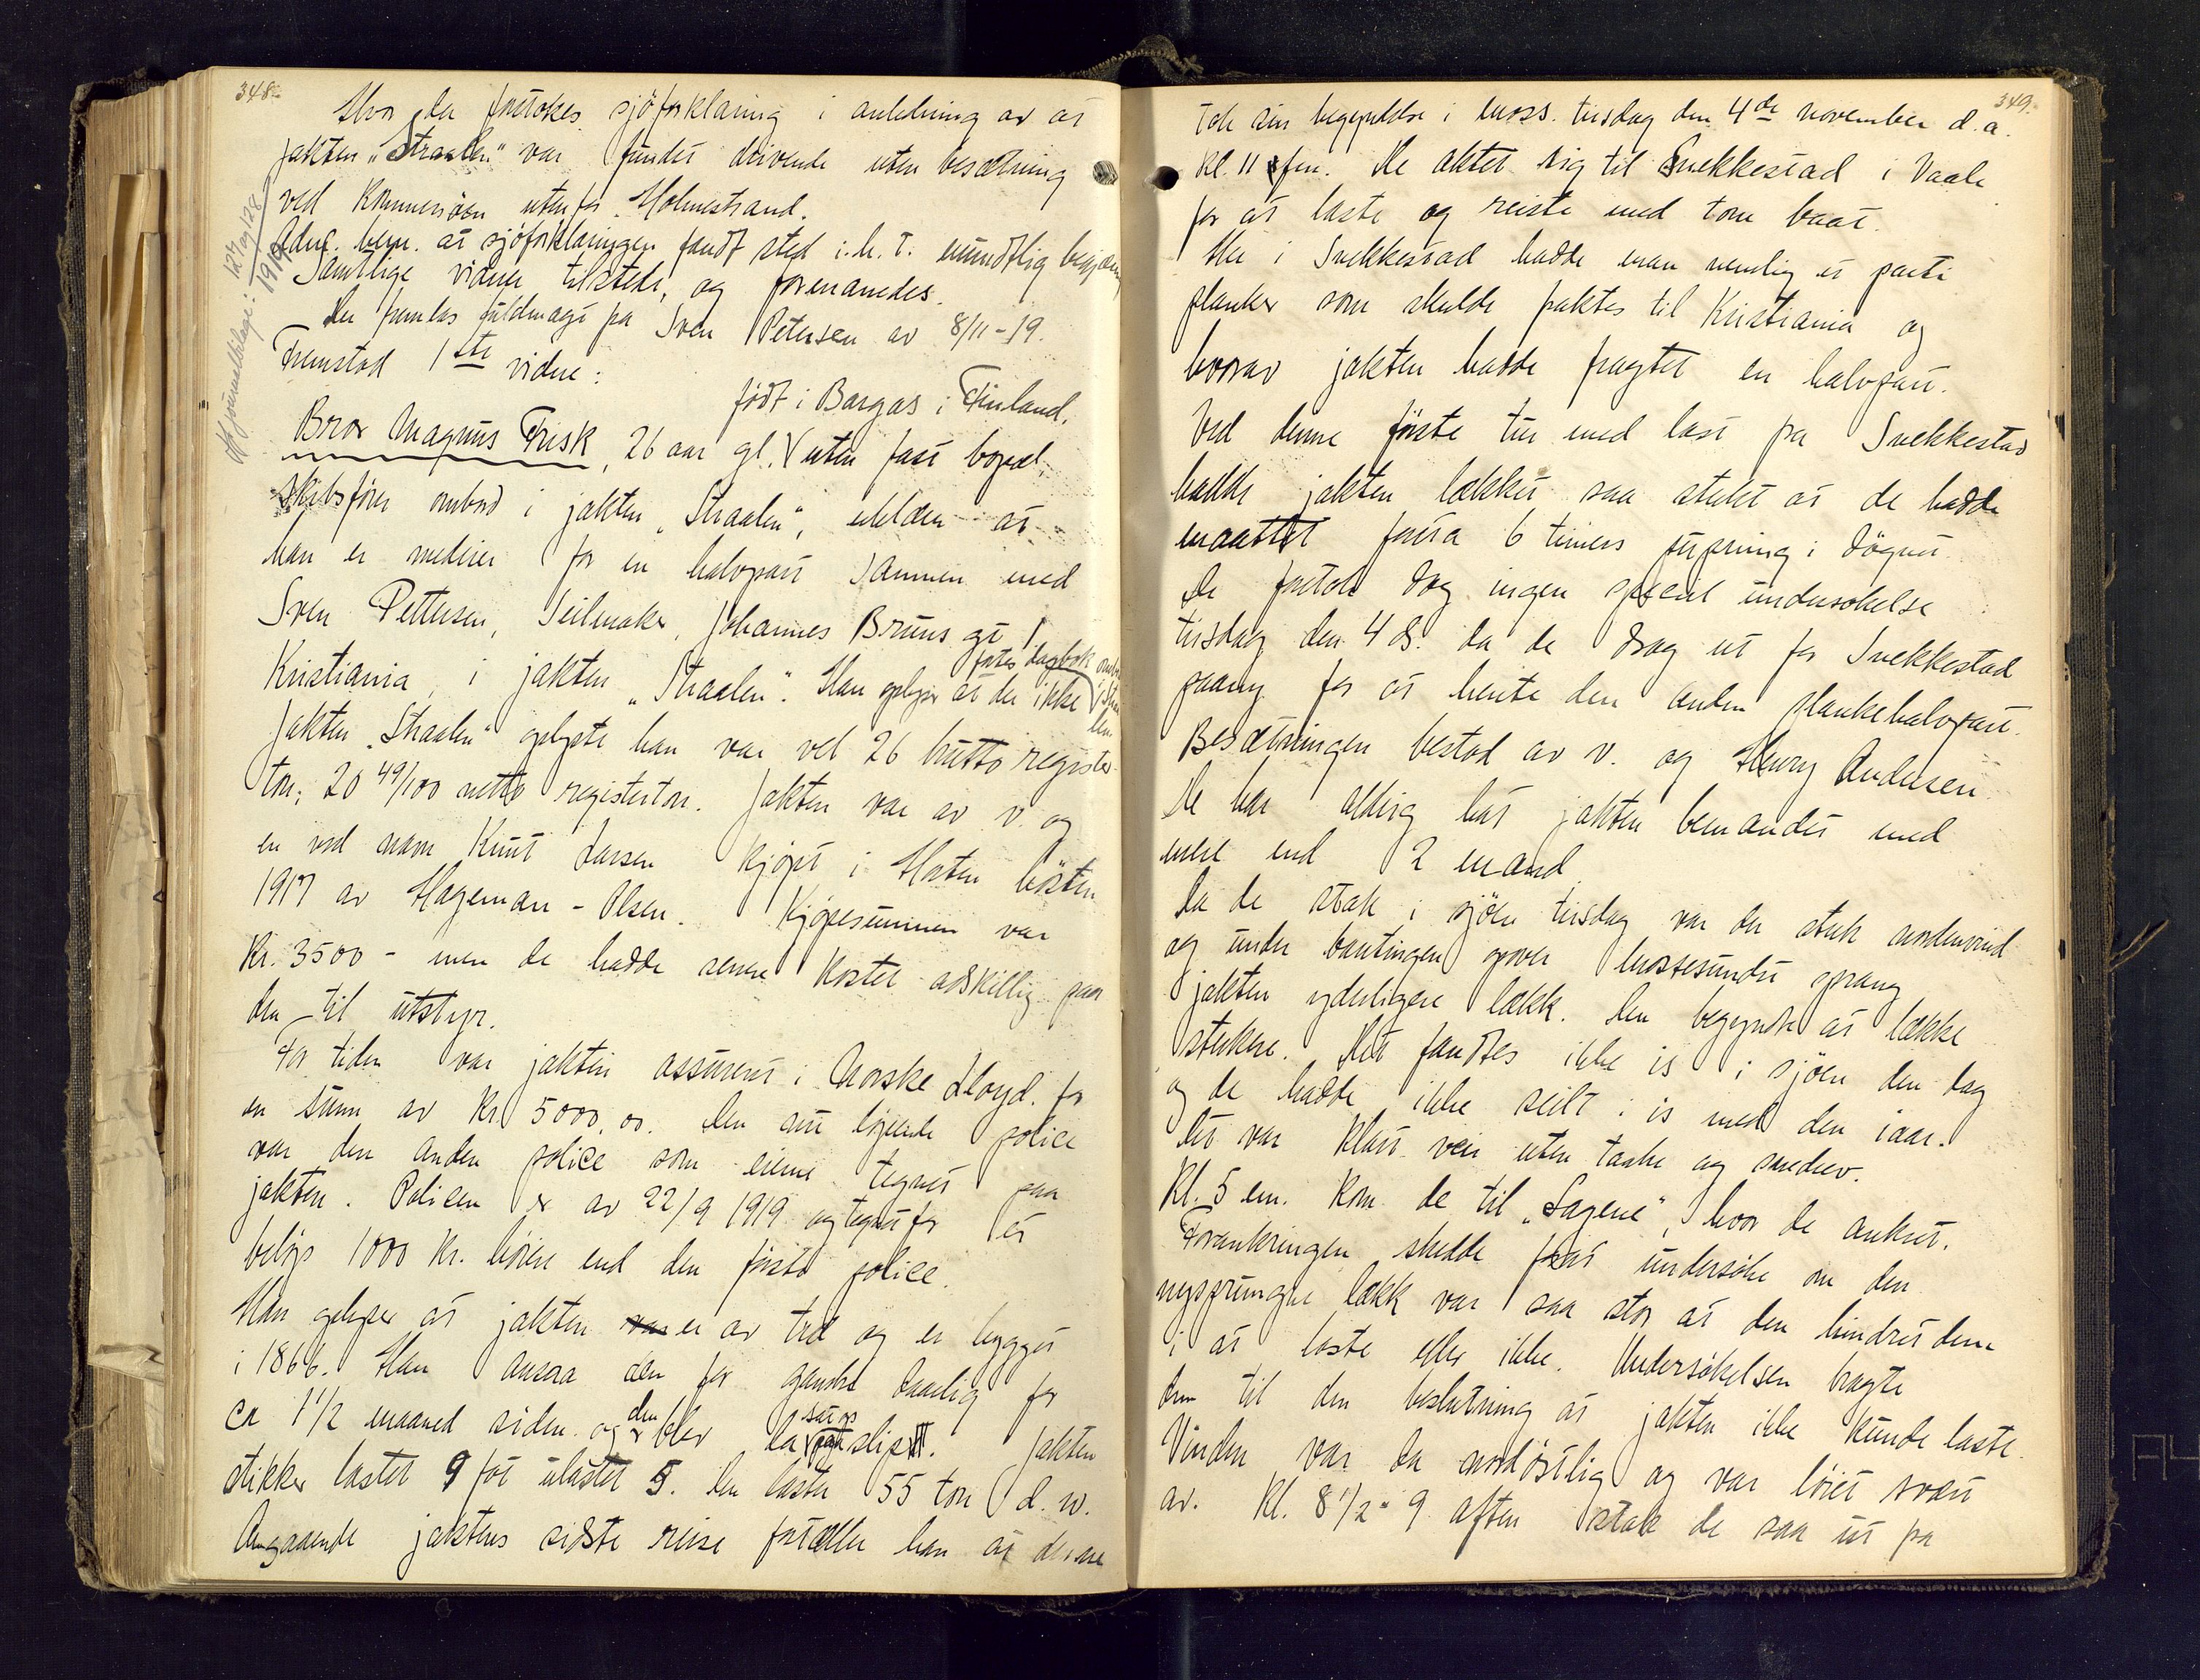 348.
Hvor da foretokes sjöforklaring i anledning av at
jakten „Straalen" var fundet drivende uten besætning
ved Kommersöen utenfor Holmestrand.
Adm. bem. at sjöforklaringen fandt sted i.h.t. mundtlig begjæring
Samtlige vidner tilstede, og formanedes.
Der fremlas fuldmagt fra Sven Petersen av 8/11-19.
Fremstod 1ste vidne:
født i Bargas i Finland,
Bror Magnus Frisk, 26 aar gl. V uten fast bopæl,
skibsfører ombord i jakten „Straalen", melder at
han er medeier for en halvpart sammen med
Sven Pettersen, Seilmaker, Johannes Bruns gt 1
Kristiania, i jakten „Straalen". Han oplyser at der ikke
føres dagbok ombord i Straalen
Jakten „Straalen" oplyste han var vel 26 brutto register
ton; 20 49/100 netto registerton. Jakten var av v. og
en ved navn Knut Larsen kjøpt i Horten høsten
1917 av Hageman-Olsen. Kjøpesummen var
Kr. 3500 - men de hadde senere kostet adskillig paa
den til utstyr.
For tiden var jakten assurert i Norske Lloyd. for
en sum av Kr. 5000,00. Den nu løpende police
var den anden police som eierne tegnet paa
jakten. Policen er av 22/9 1919 og tegnet for et
beløp 1000 Kr. høiere end den første police.
Han oplyser at jakten var er av træ og er bygget
i 1866. Han ansaa den for ganske daarlig for
ca 1 1/2 maaned siden og den blev da sat op paa slip. Jakten
stikker lastet 9 fot ulastet 5. Den laster 55 ton d.w.
Angaaende jaktens sidste reise fortæller han at denne
Hjournalbilage: 127 og 128/1919
349.
tok sin begyndelse i Moss. tirsdag den 4de november d.a.
Kl. 11 fm. De aktet sig til Snekkestad i Vaale
for at laste og reiste med tom baat.
Her i Snekkestad hadde man nemlig et parti
planker som skulde fraktes til Kristiania og
hvorav jakten hadde fragtet en halvpart.
Ved denne første tur med last fra Snekkestad
hadde jakten lækket saa sterkt at de hadde
maattet foreta 6 timers pumpning i døgnet.
De foretok dog ingen speciel undersøkelse
tirsdag den 4 ds. da de drog ut for Snekkestad
paany for at hente den anden plankehalvpart.
Besætningen bestod av v. og Henry Andersen.
De har aldrig hat jakten bemandet med
mere end 2 mand.
Da de stak i sjøen tirsdag var der sterk nordenvind
og under bautingen over Mossesundet sprang
jakten yderligere lækk. Den begyndte at lække
sterkere. Det fandtes ikke is i sjøen den dag
og de hadde ikke seilt i is med den iaar.
Det var klart veir uten taake og snedrev.
Kl. 5 em. kom de til „Sagene", hvor de ankret.
Forankringen skedde for at undersøke om den
nysprungne lækk var saa stor at den hindret dem
i at laste eller ikke. Undersøkelsen bragte
dem til den beslutning at jakten ikke kunde laste.
Vinden var da nordøstlig og var løiet svært
av. Kl. 8 1/2 - 9 aften stak de saa ut fra